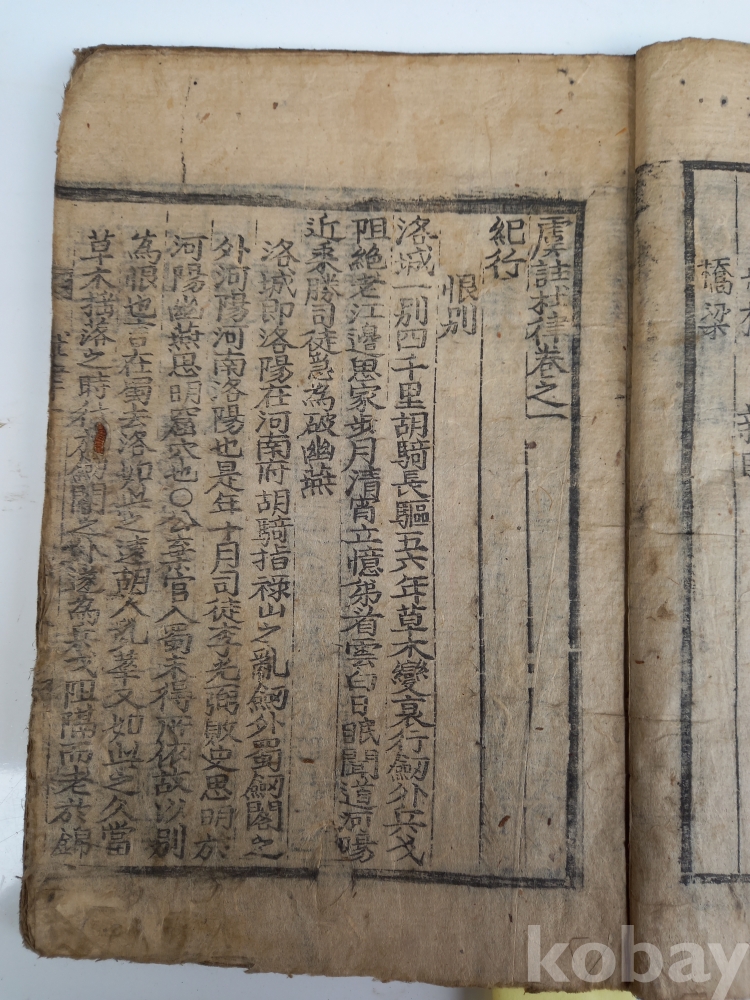 橋梁
虞註杜律卷之一
紀行
恨別
洛城一別四千里胡騎長驅五六年草木變衰行劒外兵戈
阻絶老江邊思家步月清宵立憶弟看雲白日眠聞道河陽
近乘勝司徒急為破幽燕
洛城即洛陽在河南府胡騎指祿山之亂劒外蜀劒閣之
外河陽河南洛陽也是年十月司徒李光弼敗史思明於
河陽幽燕思明窟穴也〇公棄官入蜀未得所依故以別
為恨也言在蜀去洛如此之遠胡人乱華又如此之久當
草木揺落之時劒閣之外遂為兵戈阻隔而老於錦
kobay